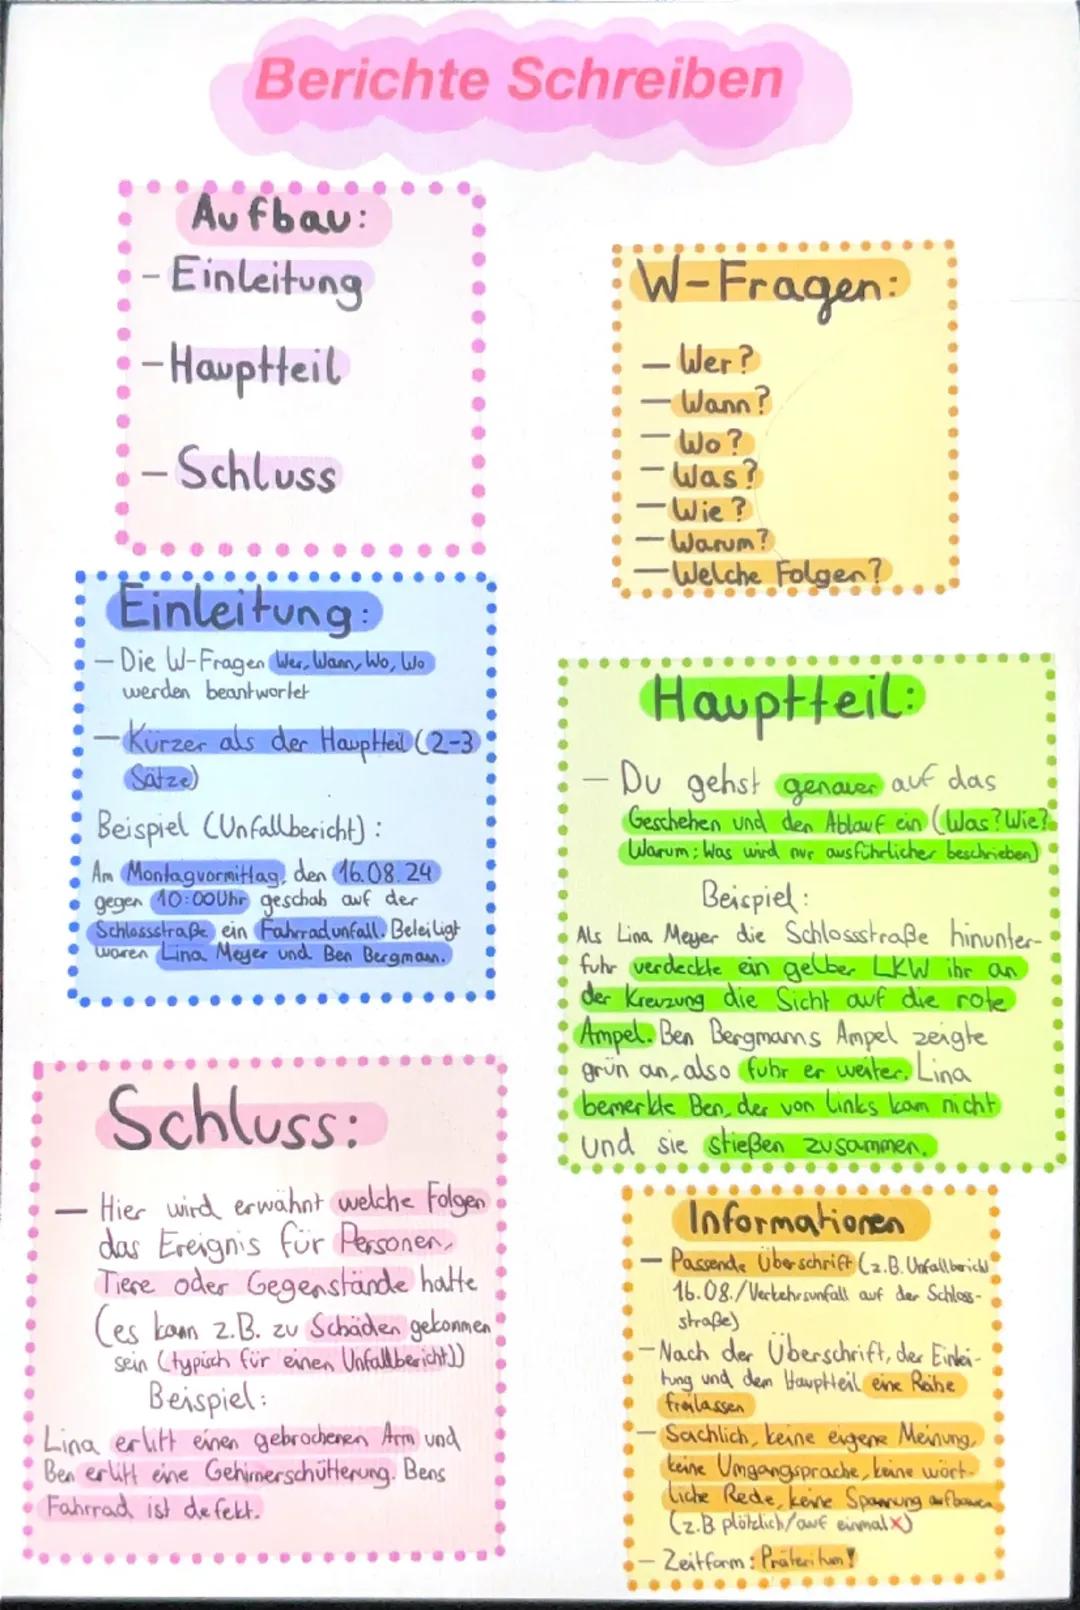 Berichte Schreiben
Aufbau:
- Einleitung
- Hauptteil
- Schluss
W-Fragen:
- Wer?
- Wann?
- Wo?
- Was?
- Wie?
- Warum?
- Welche Folgen?
Einleitung:
- Die W-Fragen Wer, Wann, Wo, Wo
werden beantwortet
- Kürzer als der Hauptteil (2-3
Sätze)
Beispiel (Unfallbericht):
Am Montagvormittag, den 16.08.24
gegen 10:00Uhr geschah auf der
Schlossstraße ein Fahrradunfall. Beteiligt
waren Lina Meyer und Ben Bergmann.
Hauptteil:
- Du gehst genauer auf das
Geschehen und den Ablauf ein (Was? Wie?
Warum: Was wird nur ausführlicher beschrieben)
Beispiel:
Als Lina Meyer die Schlossstraße hinunter-
fuhr verdeckte ein gelber LKW ihr an
der Kreuzung die Sicht auf die rote
Ampel. Ben Bergmanns Ampel zeigte
grün an, also fuhr er weiter. Lina
bemerkte Ben, der von links kam nicht
und sie stießen zusammen.
Schluss:
- Hier wird erwähnt welche Folgen
das Ereignis für Personen,
Tiere oder Gegenstände hatte
(es kann z.B. zu Schäden gekommen
sein (typisch für einen Unfallbericht))
Beispiel:
Lina erlitt einen gebrochenen Arm und
Ben erlitt eine Gehirnerschütterung. Bens
Fahrrad ist defekt.
Informationen
- Passende Überschrift (z.B. Unfallbericht
16.08./Verkehrsunfall auf der Schloss-
straße)
- Nach der Überschrift, der Einlei-
tung und dem Hauptteil eine Reihe
freilassen
- Sachlich, keine eigene Meinung,
keine Umgangsprache, keine wört-
liche Rede, keine Spannung aufbauen
(z.B plötzlich/auf einmal X)
- Zeitform: Präteritum!